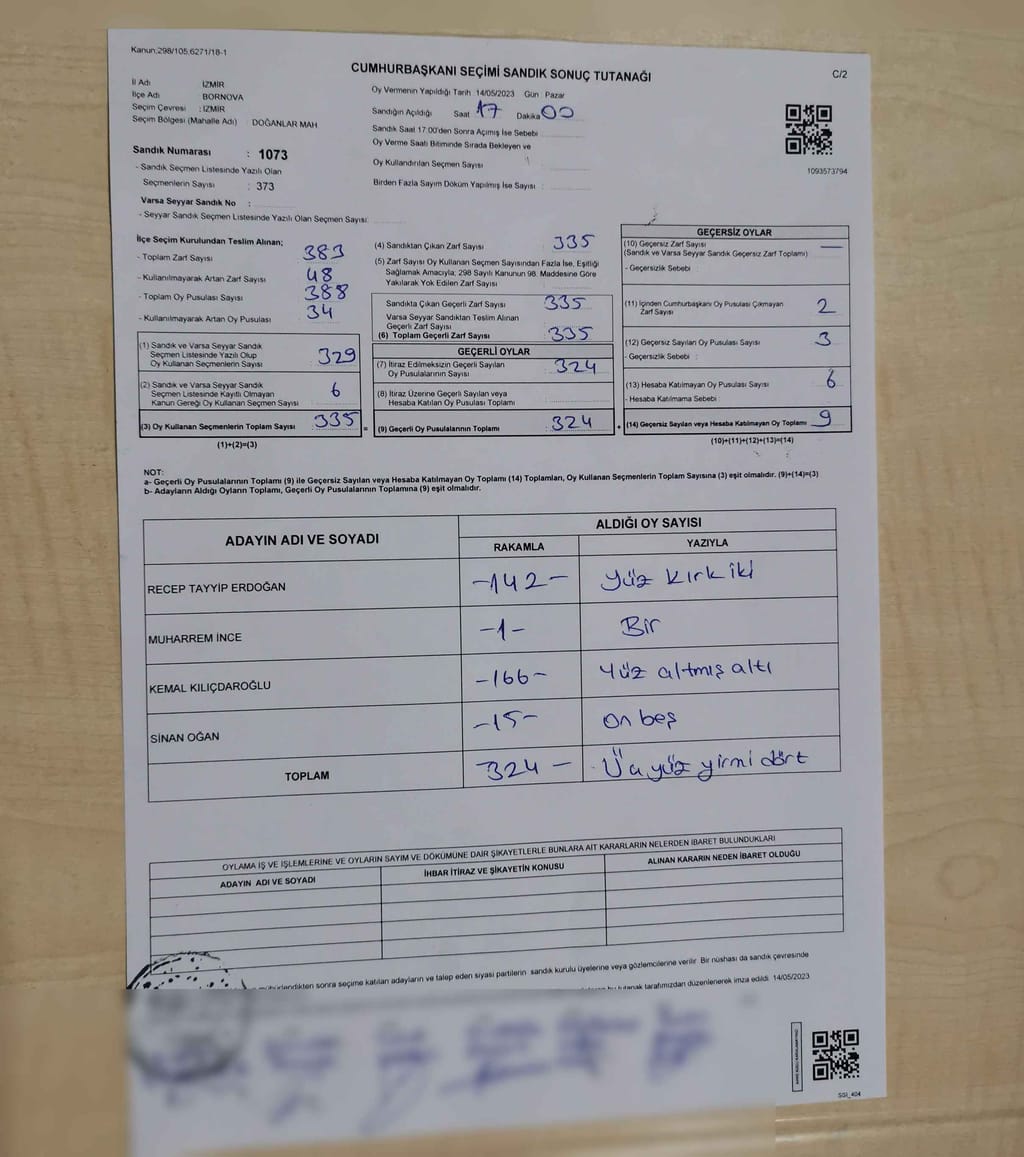 Kanun;298/105,6271/18-1
CUMHURBAŞKANI SEÇİMİ SANDIK SONUÇ TUTANAĞI
C/2
İl Adı İZMİR
İlçe Adı BORNOVA
Seçim Çevresi : İZMİR
Seçim Bölgesi (Mahalle Adı) DOĞANLAR MAH
Sandık Numarası : 1073
- Sandık Seçmen Listesinde Yazılı Olan
Seçmenlerin Sayısı : 373
Varsa Seyyar Sandık No :
- Seyyar Sandık Seçmen Listesinde Yazılı Olan Seçmen Sayısı:
Oy Vermenin Yapıldığı Tarih 14/05/2023 Gün Pazar
Sandığın Açıldığı Saat 17 Dakika 00
Sandık Saat 17.00'den Sonra Açımış İse Sebebi
Oy Verme Saati Bitiminde Sırada Bekleyen ve
Oy Kullandırılan Seçmen Sayısı
Birden Fazla Sayım Döküm Yapılmış İse Sayısı :
1093573794
İlçe Seçim Kurulundan Teslim Alınan;
- Toplam Zarf Sayısı 383
- Kullanılmayarak Artan Zarf Sayısı 48
- Toplam Oy Pusulası Sayısı 388
- Kullanılmayarak Artan Oy Pusulası 34
(1) Sandık ve Varsa Seyyar Sandık
Seçmen Listesinde Yazılı Olup
Oy Kullanan Seçmenlerin Sayısı 329
(2) Sandık ve Varsa Seyyar Sandık
Seçmen Listesinde Kayıtlı Olmayan
Kanun Gereği Oy Kullanan Seçmen Sayısı 6
(3) Oy Kullanan Seçmenlerin Toplam Sayısı 335
(1)+(2)=(3)
(4) Sandıktan Çıkan Zarf Sayısı 335
(5) Zarf Sayısı Oy Kullanan Seçmen Sayısından Fazla İse, Eşitliği
Sağlamak Amacıyla; 298 Sayılı Kanunun 98. Maddesine Göre
Yakılarak Yok Edilen Zarf Sayısı
Sandıkta Çıkan Geçerli Zarf Sayısı 335
Varsa Seyyar Sandıktan Teslim Alınan
Geçerli Zarf Sayısı
(6) Toplam Geçerli Zarf Sayısı 335
GEÇERLİ OYLAR
(7) İtiraz Edilmeksizin Geçerli Sayılan
Oy Pusulalarının Sayısı 324
(8) İtiraz Üzerine Geçerli Sayılan veya
Hesaba Katılan Oy Pusulası Toplamı
= (9) Geçerli Oy Pusulalarının Toplamı 324 +
GEÇERSİZ OYLAR
(10) Geçersiz Zarf Sayısı —
(Sandık ve Varsa Seyyar Sandık Geçersiz Zarf Toplamı)
- Geçersizlik Sebebi
(11) İçinden Cumhurbaşkanı Oy Pusulası Çıkmayan
Zarf Sayısı 2
(12) Geçersiz Sayılan Oy Pusulası Sayısı 3
- Geçersizlik Sebebi :
(13) Hesaba Katılmayan Oy Pusulası Sayısı 6
- Hesaba Katılmama Sebebi
(14) Geçersiz Sayılan veya Hesaba Katılmayan Oy Toplamı 9
(10)+(11)+(12)+(13)=(14)
NOT:
a- Geçerli Oy Pusulalarının Toplamı (9) ile Geçersiz Sayılan veya Hesaba Katılmayan Oy Toplamı (14) Toplamları, Oy Kullanan Seçmenlerin Toplam Sayısına (3) eşit olmalıdır. (9)+(14)=(3)
b- Adayların Aldığı Oyların Toplamı, Geçerli Oy Pusulalarının Toplamına (9) eşit olmalıdır.
ADAYIN ADI VE SOYADI ALDIĞI OY SAYISI
RAKAMLA YAZIYLA
RECEP TAYYİP ERDOĞAN -142- Yüz Kırk iki
MUHARREM İNCE -1- Bir
KEMAL KILIÇDAROĞLU -166- Yüz altmış altı
SİNAN OĞAN -15- On beş
TOPLAM 324 - Üç yüz yirmi dört
OYLAMA İŞ VE İŞLEMLERİNE VE OYLARIN SAYIM VE DÖKÜMÜNE DAİR ŞİKAYETLERLE BUNLARA AİT KARARLARIN NELERDEN İBARET BULUNDUKLARI
ADAYIN ADI VE SOYADI İHBAR İTİRAZ VE ŞİKAYETİN KONUSU ALINAN KARARIN NEDEN İBARET OLDUĞU
sonra seçime katılan adayların ve talep eden siyasi partilerin sandık kurulu üyelerine veya gözlemcilerine verilir. Bir nüshası da sandık çevresinde
bu tutanak tarafımızdan düzenlenerek imza edildi. 14/05/2023
SGİ_404